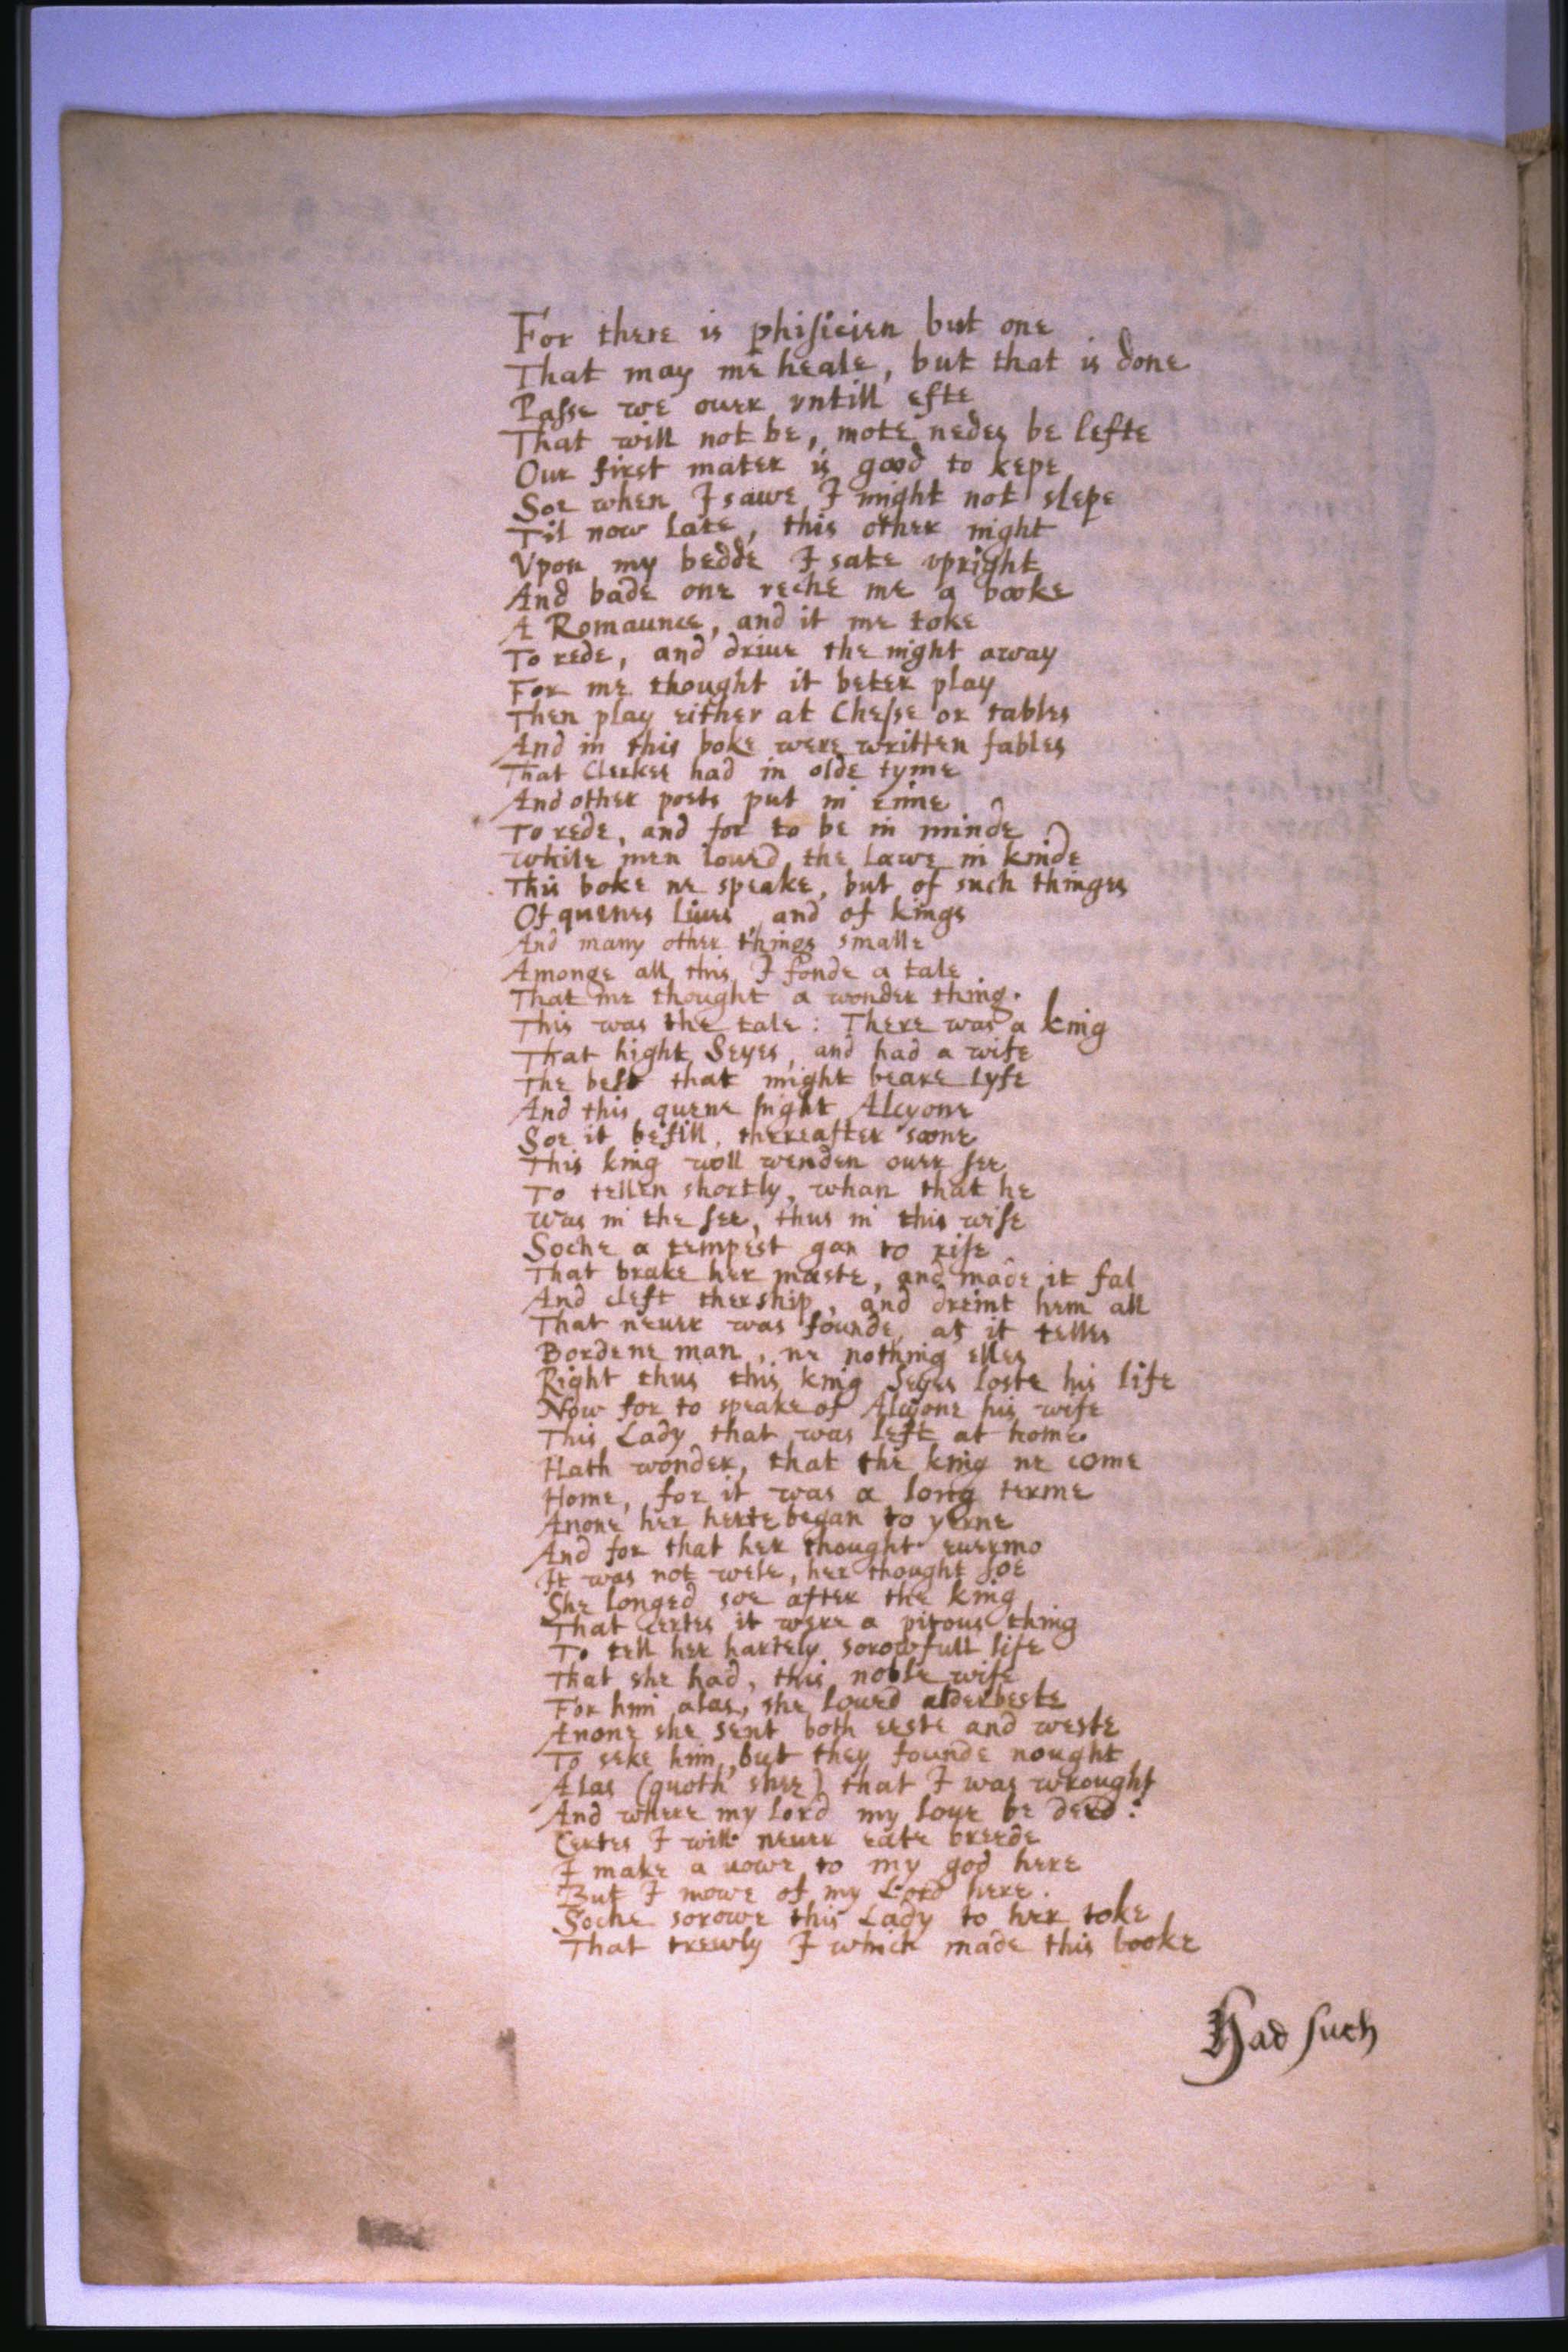 For there is phisicien but one
That may me heale, but that is done
Passe we ouer vntill efte
That will not be, mote nedes be lefte
Our first mater is good to kepe
Soe when I sawe I might not slepe
Til now late, this other night
Vpon my bedde I sate vpright
And bade one reche me a booke
A Romaunce, and it me toke
To rede, and driue the night away
For me thought it beter play
Then play either at Chesse or tables
And in this boke were written fables
That Clerkes had in olde tyme
And other poets put in rime
To rede, and for to be in minde
While men loued the lawe in kinde
This boke ne speake, but of such thinges
Of quenes liues, and of kings
And many other things smalle
Amonge all this I fonde a tale
That me thought a wonder thing.
This was the tale: There was a king
That hight Seyes, and had a wife
The best that might beare lyfe
And this quene hight Alcyone
Soe it befill, thereafter soone
This king woll wenden ouer see
To tellen shortly, whan that he
Was in the see, thus in this wise
Soche a tempest gan to rise
That brake her maste, and made it fal
And cleft ther ship, and dreint hem all
That neuer was founde, as it telles
Borde ne man, ne nothing elles
Right thus this king Seyes loste his life
Now for to speake of Alcyone his wife
This Lady that was left at home
Hath wonder, that the king ne come
Home, for it was a long terme
Anone her herte began to yerne
And for that her thought euermo
It was not wele, her thought soe
She longed soe after the king
That certes it were a pitous thing
To tell her hartely sorowfull life
That she had, this noble wife
For him alas, she loued alderbeste
Anone she sent both eeste and weste
To seke him, but they founde nought
Alas (quoth shee) that I was wrought
And where my lord my loue be deed:
Certes I will neuer eate breede
I make a uowe to my god here
But I mowe of my Lord here.
Soche sorowe this Lady to her toke
That trewly I which made this booke
Had such